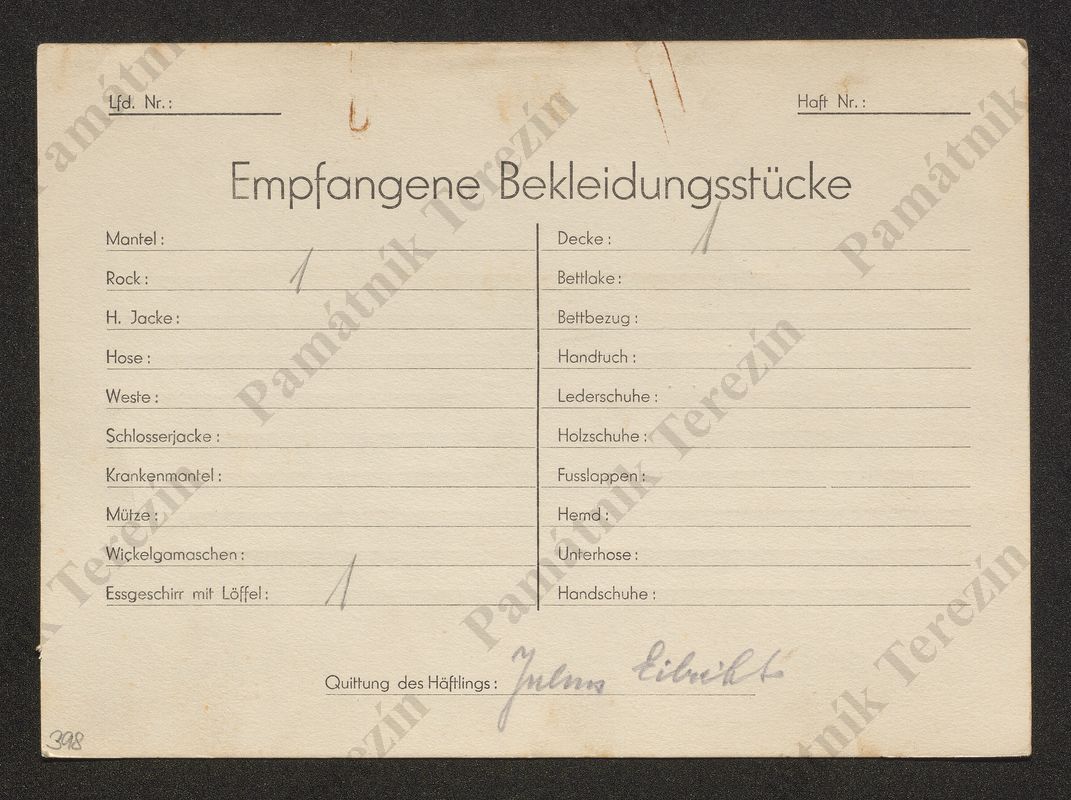 Lfd. Nr.:
Haft Nr.:
Empfangene Bekleidungsstücke
Mantel:
Rock: 1
H. Jacke:
Hose:
Weste:
Schlosserjacke:
Krankenmantel:
Mütze:
Wickelgamaschen:
Essgeschirr mit Löffel: 1
Decke: 1
Bettlake:
Bettbezug:
Handtuch:
Lederschuhe:
Holzschuhe:
Fusslappen:
Hemd:
Unterhose:
Handschuhe:
Quittung des Häftlings: Julius
398
Památník Terezín